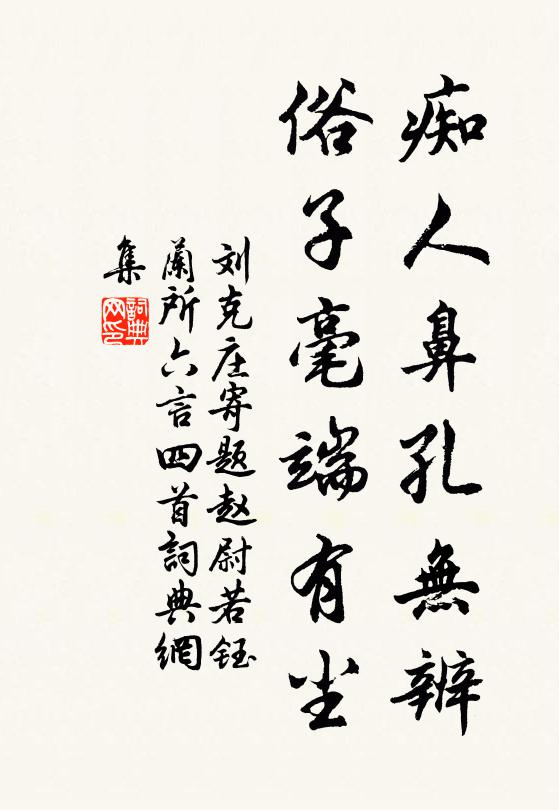 痴人鼻孔無辨
俗子毫端有尘
刘克庄寄题赵尉若钰
蘭所六言四首詞典網
集
詞典网印